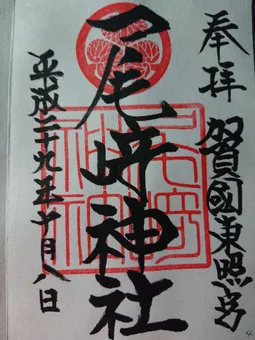 奉拝
賀國東照宮
尾崎神社
平成二十九年十月八日